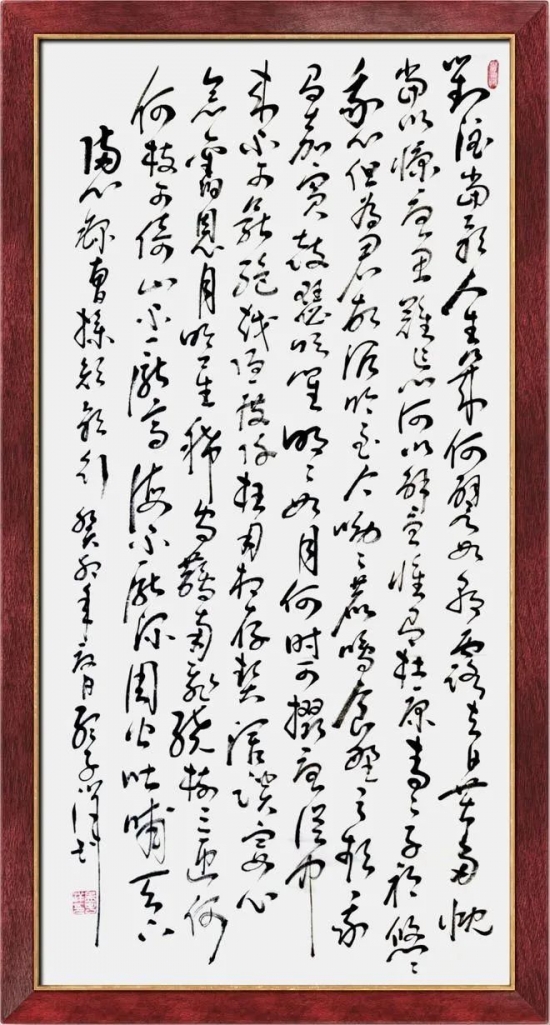 對酒當歌人生幾何譬如朝露去日苦多慨
當以慷憂思難忘何以解憂惟有杜康青々子衿悠々
我心但為君故沉吟至今呦々鹿鳴食野之蘋我
有嘉賓鼓瑟吹笙明々如月何时可掇憂從中
來不可斷絕越陌度阡枉用相存契闊談宴心
念舊恩月明星稀烏鵲南飛繞樹三匝何
何枝可倚山不厭高海不厭深周公吐哺天下
歸心錄曹操短歌行 癸卯年月书